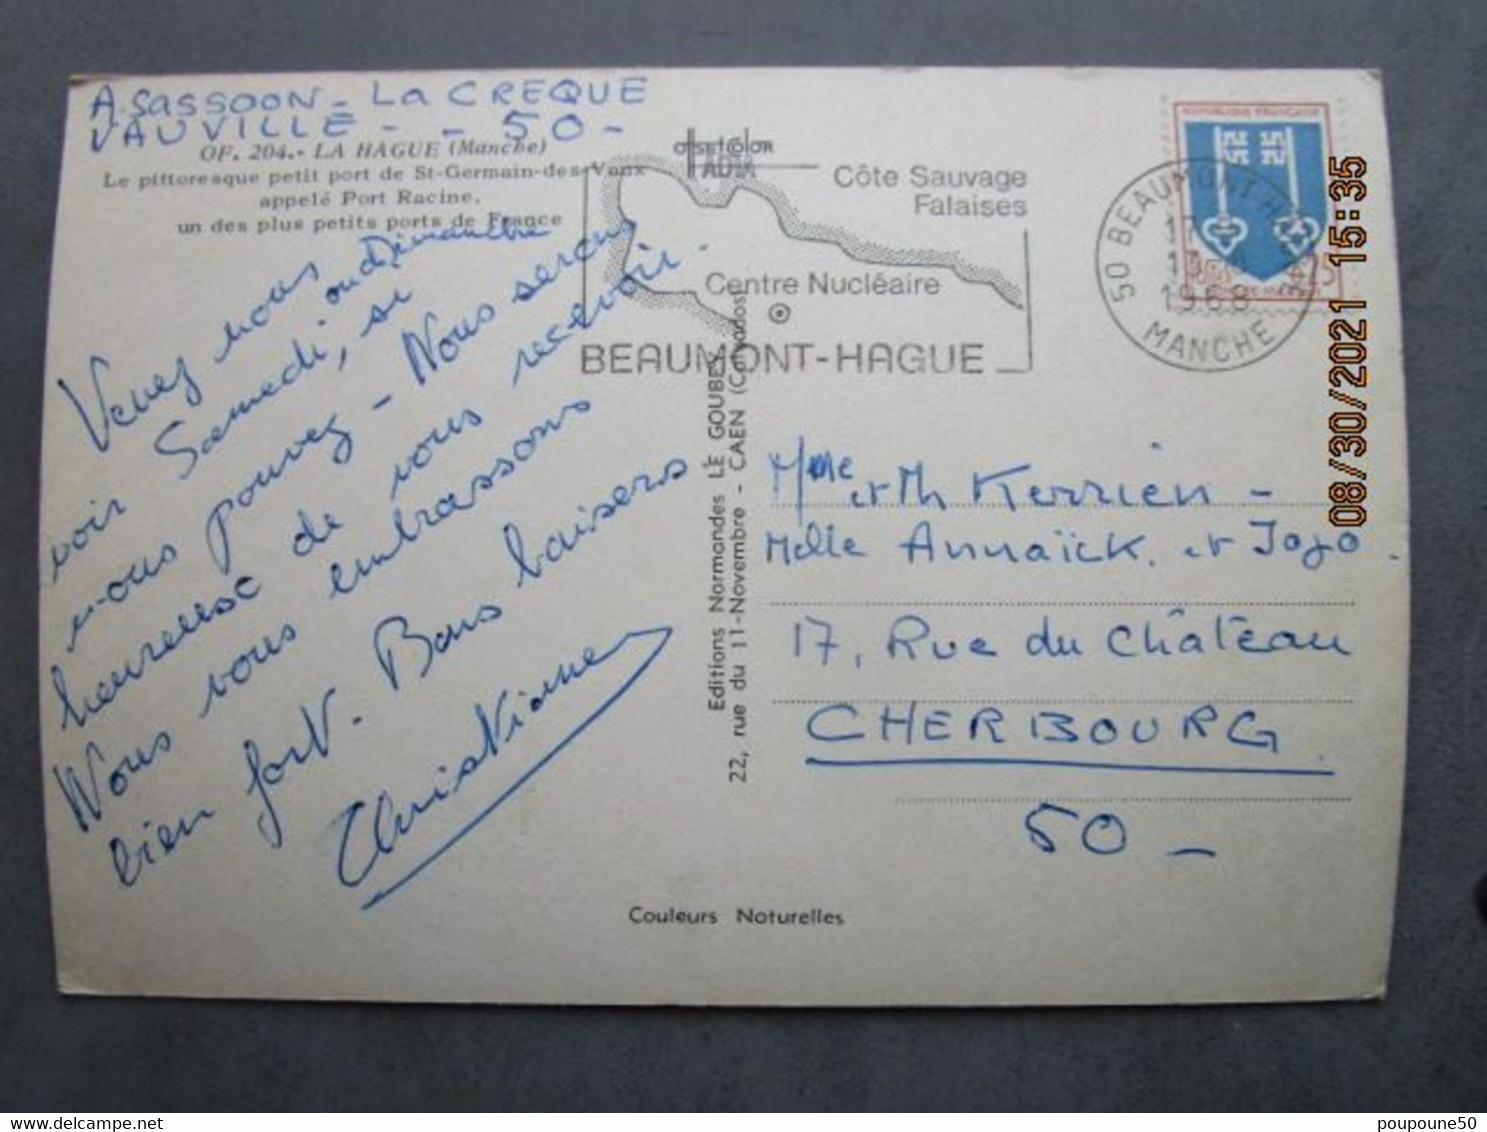 A. SASSOON - LA CREQUE
VAUVILLE - - 50 -
OF. 204. - LA HAGUE (Manche)
Le pittoresque petit port de St-Germain-des-Vaux
appelé Port Racine,
un des plus petits ports de France
Venez nous
voir Samedi, ou dimanche si
vous pouvez - Nous serons
heureuse de vous recevoir.
Nous vous embrassons
bien fort. Bons baisers
Christiane
OFFSETCOLOR
Côte Sauvage
Falaises
Centre Nucléaire
BEAUMONT-HAGUE
REPUBLIQUE FRANÇAISE
50 BEAUMONT H
17
13
1968
MANCHE
Editions Normandes LE GOUBEY
22, rue du 11-Novembre - CAEN (Calvados)
Mme et Mr Kerrien -
Melle Annaïck. et Jojo
17, Rue du Château
CHERBOURG
50 -
Couleurs Naturelles
08/30/2021 15:35
poupoune50